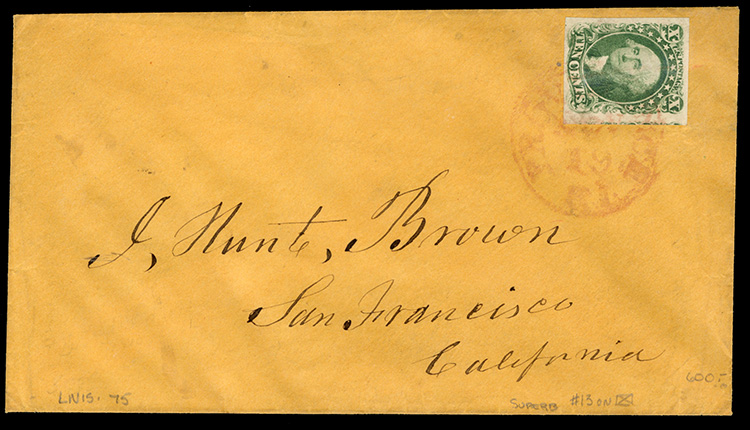 X U.S. POSTAGE X
TEN CENTS
19
R.I.
J, Hunt, Brown
San Francisco
California
600.-
LN15. 75
SUPERB #13 ON